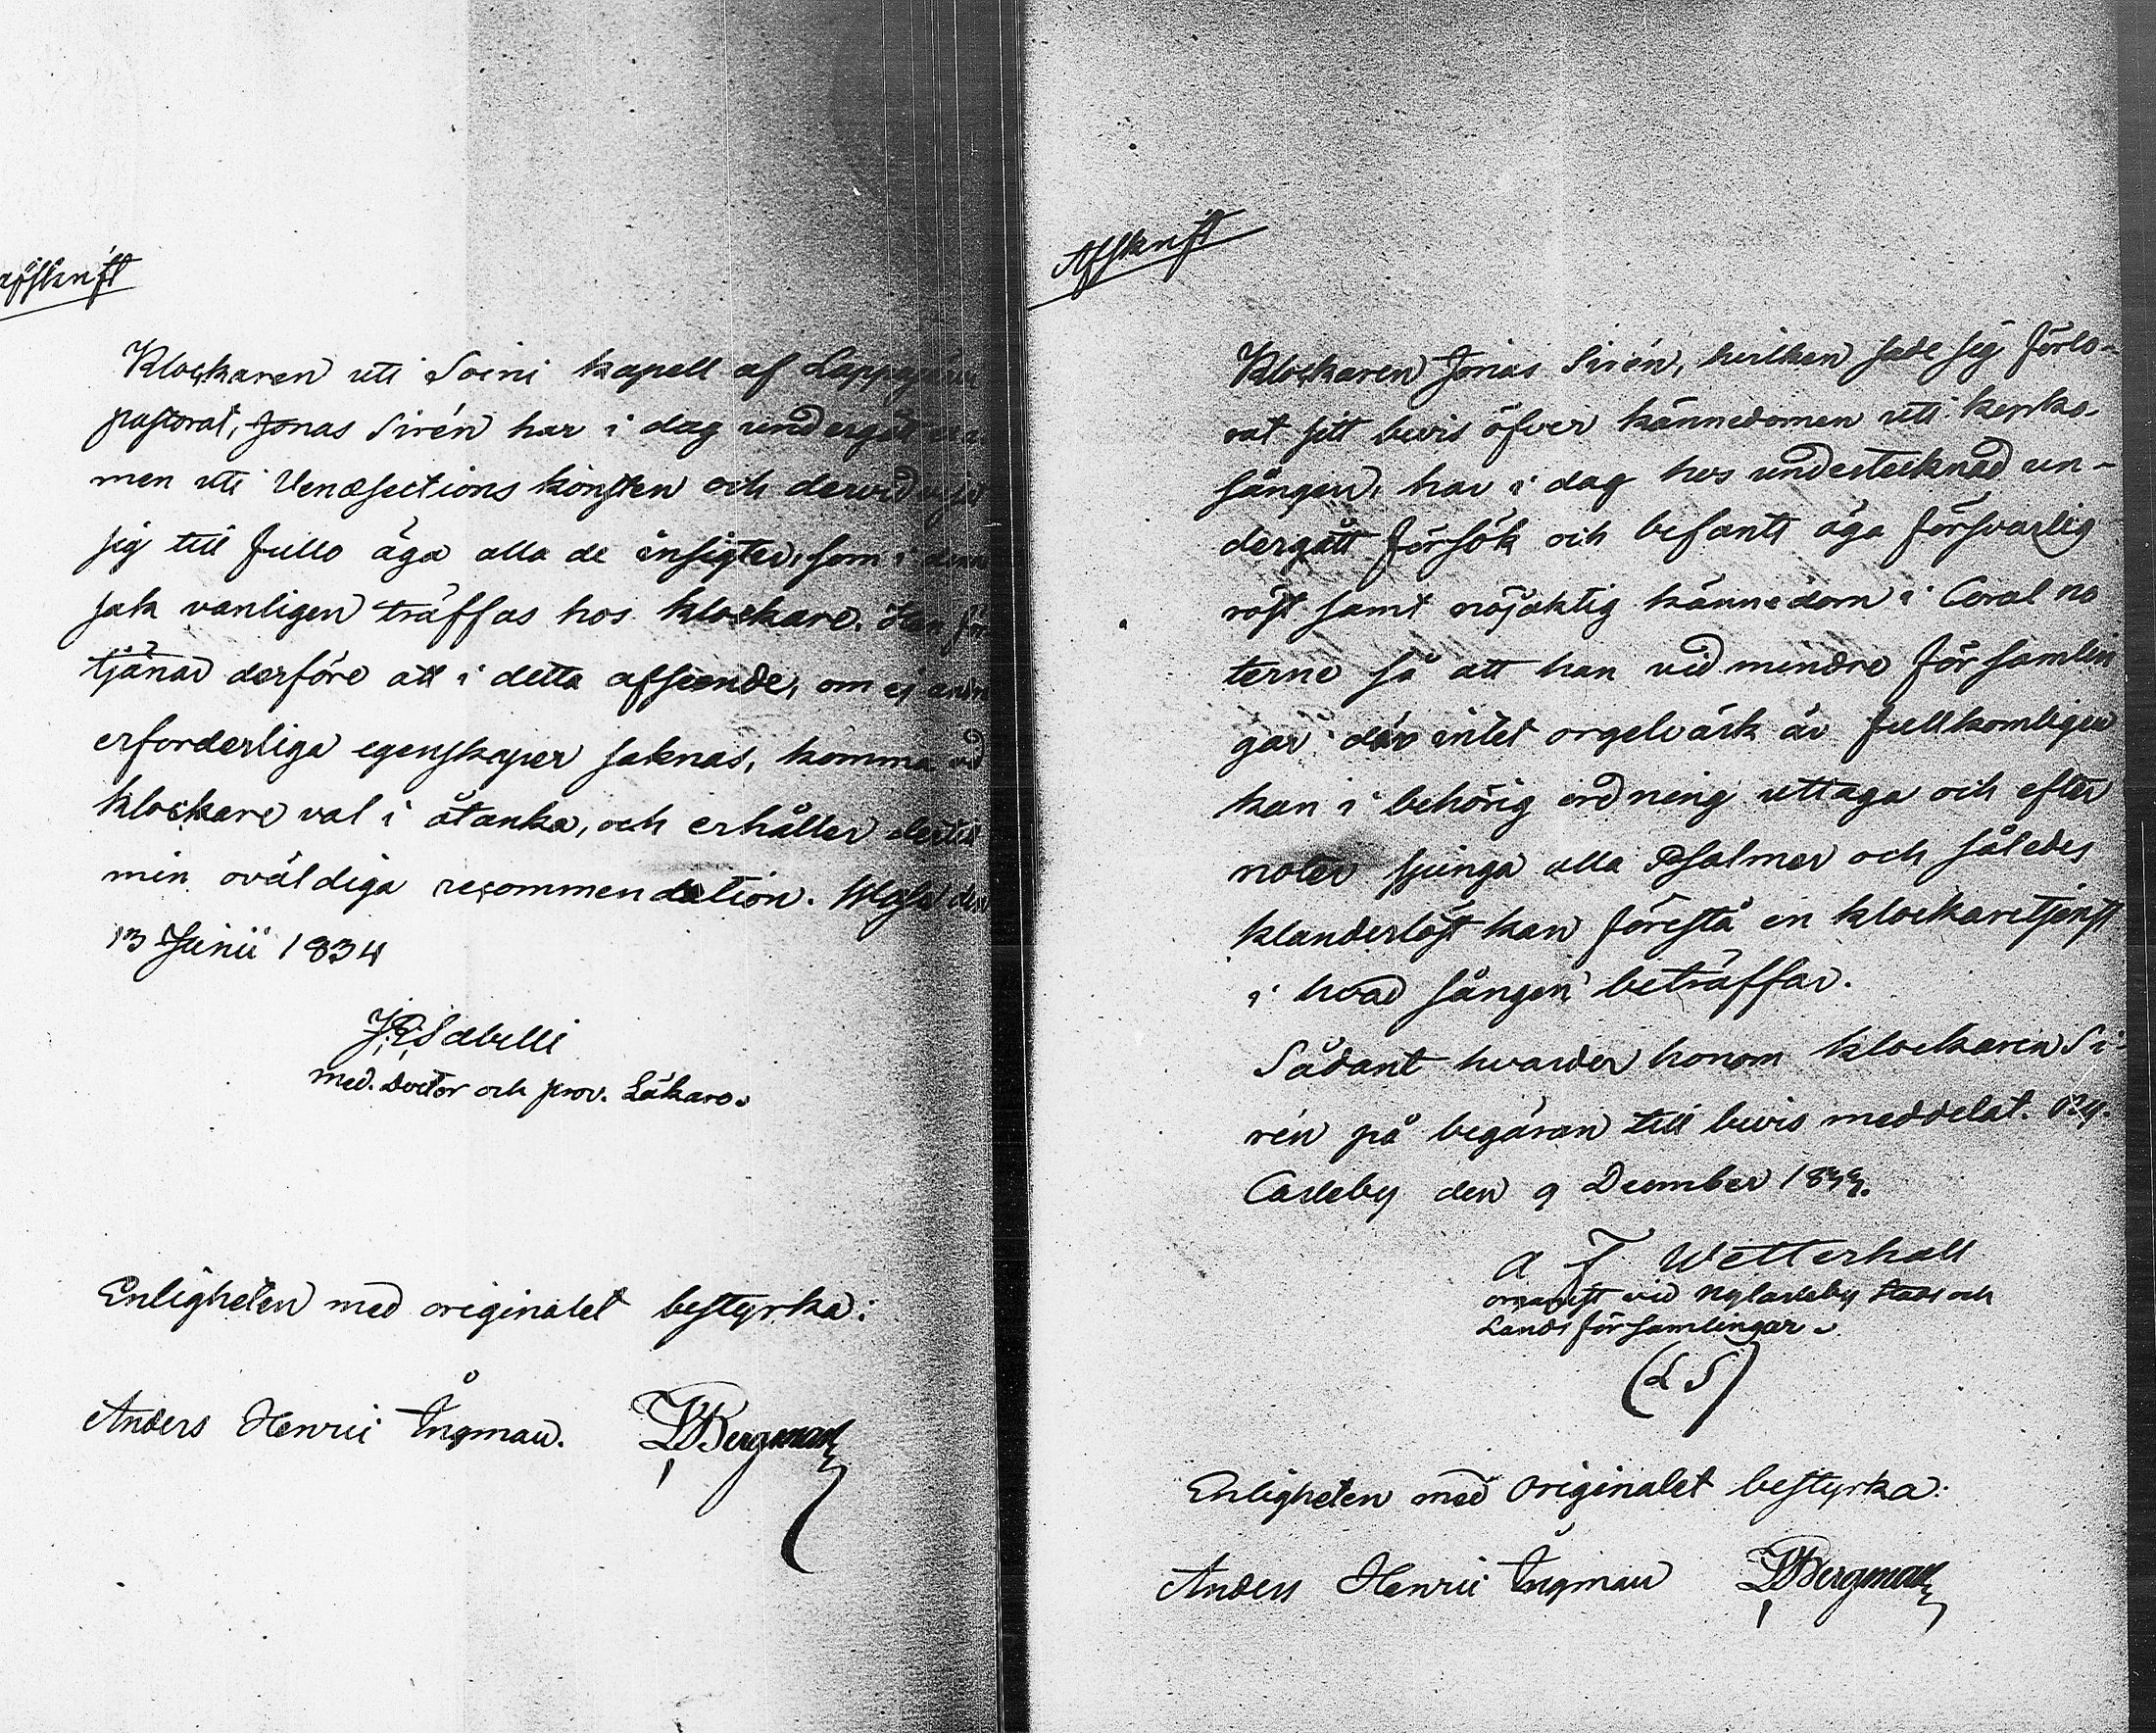 afskrift
Klockaren uti Soini kapell af Lappajärvi
pastorat, Jonas Sirén har i dag undergått exa-
men uti Venæsections konsten och dervid vist
sig till fullo äga alla de insigter, som i denna
sak vanligen träffas hos klockare. Han för
tjänar derföre att i detta afseende, om ej andra
erforderliga egenskaper saknas, komma vid
klockare val i åtanka, och erhåller dertill
min oväldiga recommendation. den
13 Junii 1834
J. E. Sabelli
med. Doctor och prov. Läkare.
Enligheten med originalet bestyrka:
Anders Henric Ingman. Bergman
Afskrift
Klockaren Jonas Sirén, hvilken sade sig förlo-
rat sitt bevis öfver kännedomen uti kyrko-
sången, har i dag hos undertecknad un-
dergått försök och befants äga försvarlig
röst samt nöjaktig kännedom i Coral no
terne så att han vid mindre församlin
gar der intet orgelvärk är fullkomligen
kan i behörig ordning uttaga och efter
noter sjunga alla Psalmer och således
klanderlöst kan förestå en klockaretjenst
i hvad sången beträffar.
Sådant hvarder honom klockaren Si-
rén på begäran till bevis meddelat. Ny-
Carleby den 9 December 1833.
A F Wetterhall
organist vid Nycarleby stads och
Lands församlingar.
(L S)
Enligheten med originalet bestyrka:
Anders Henric Ingman Bergman